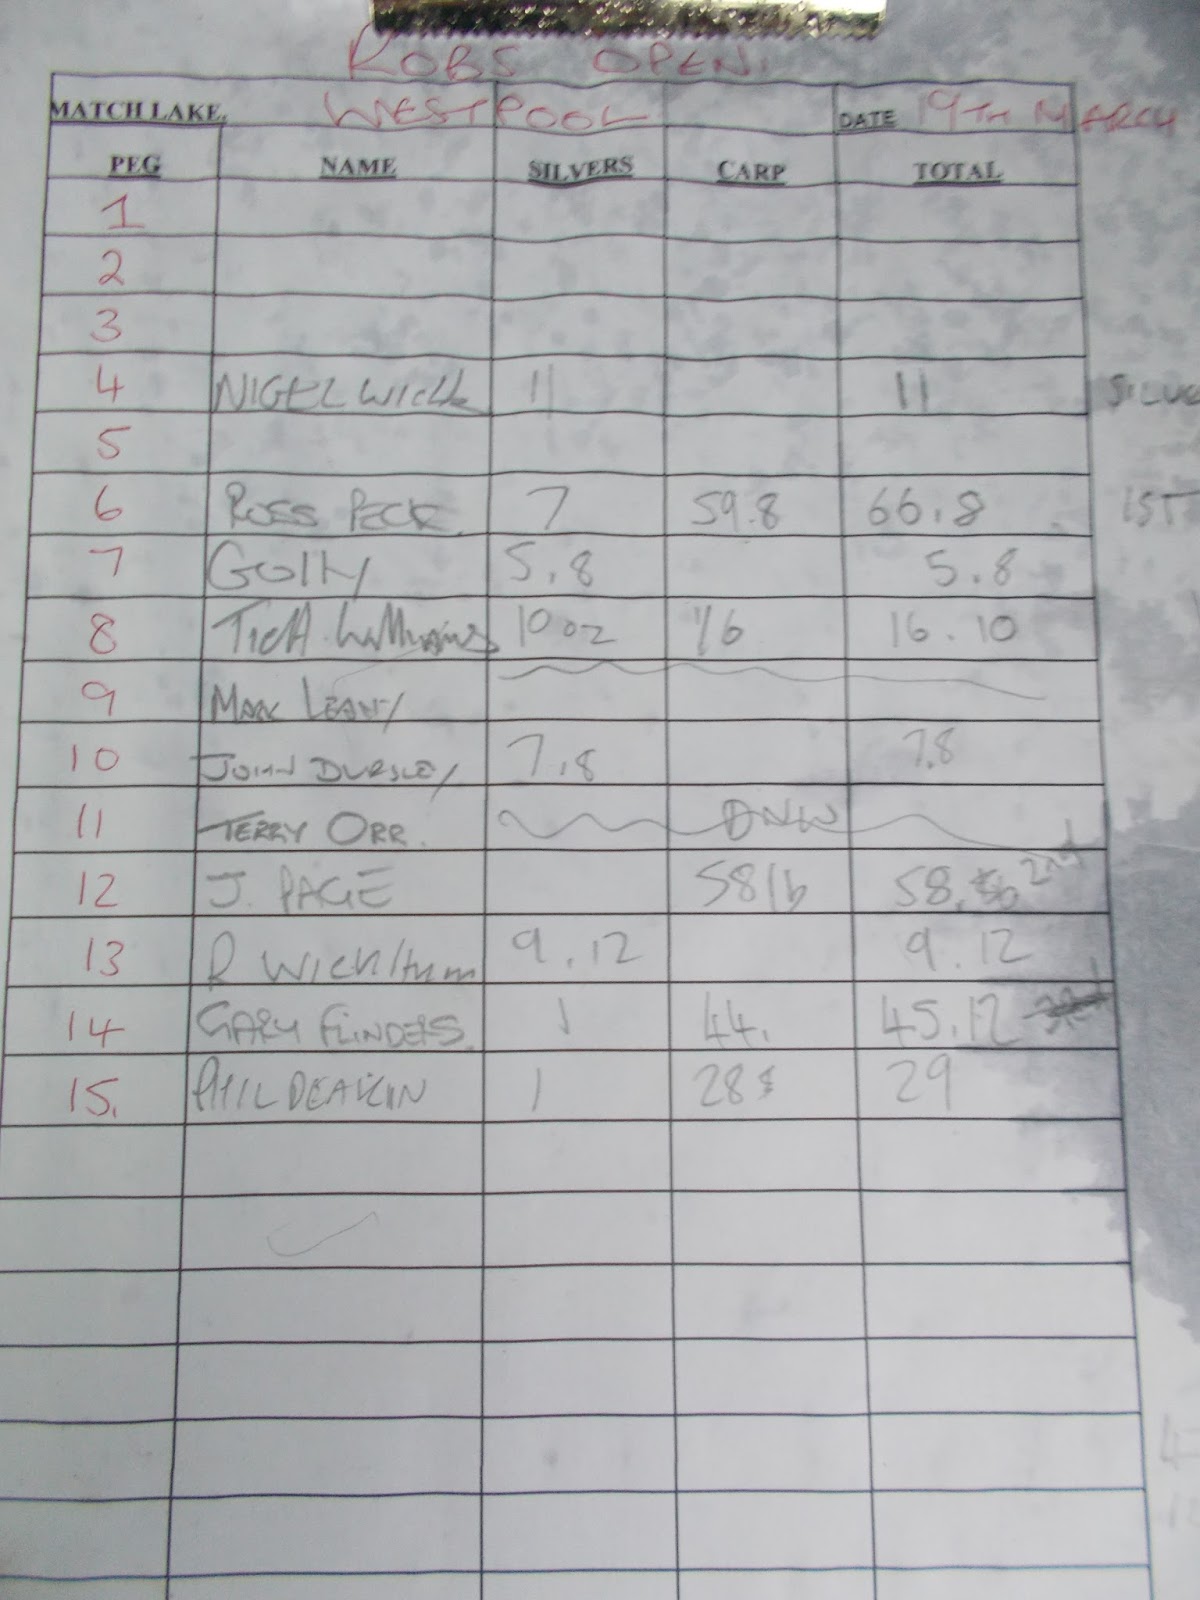 ROBS OPEN.
MATCH LAKE. WESTPOOL DATE 19TH MARCH
PEG NAME SILVERS CARP TOTAL
1
2
3
4 NIGEL 11 11 SILVE
5
6 ROSS PECK. 7 59.8 66.8 1ST
7 5.8 5.8
8 10oz 16 16.10
9 MARK LEAHY
10 JOHN DURSLEY 7.8 7.8
11 TERRY ORR. DNW
12 J. PAGE 58lb 58. 2nd
13 R 9.12 9.12
14 GARY FLINDERS. 1 44. 45.12
15. PHIL DEAKIN 1 28 29